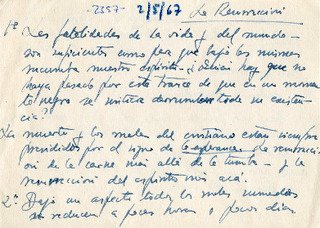 -2357- 2/5/67 La Resurrección
1º Las fatalidades de la vida y del mundo
son suficientes como para que bajo las mismas
sucumba nuestro espíritu ¿Quien hay que no
haya pasado por este trance de que en un momen
to negro se sintiera derrumbar toda su existen
cia?
La muerte y los males del cristiano están siempre
presididos por el signo de la esperanza. La resurrecci
ón de la carne más allá de la tumba y la
resurrección del espíritu más acá.
2º Bajo un aspecto todos los males humanos
se reducen a pocas horas, pocos días